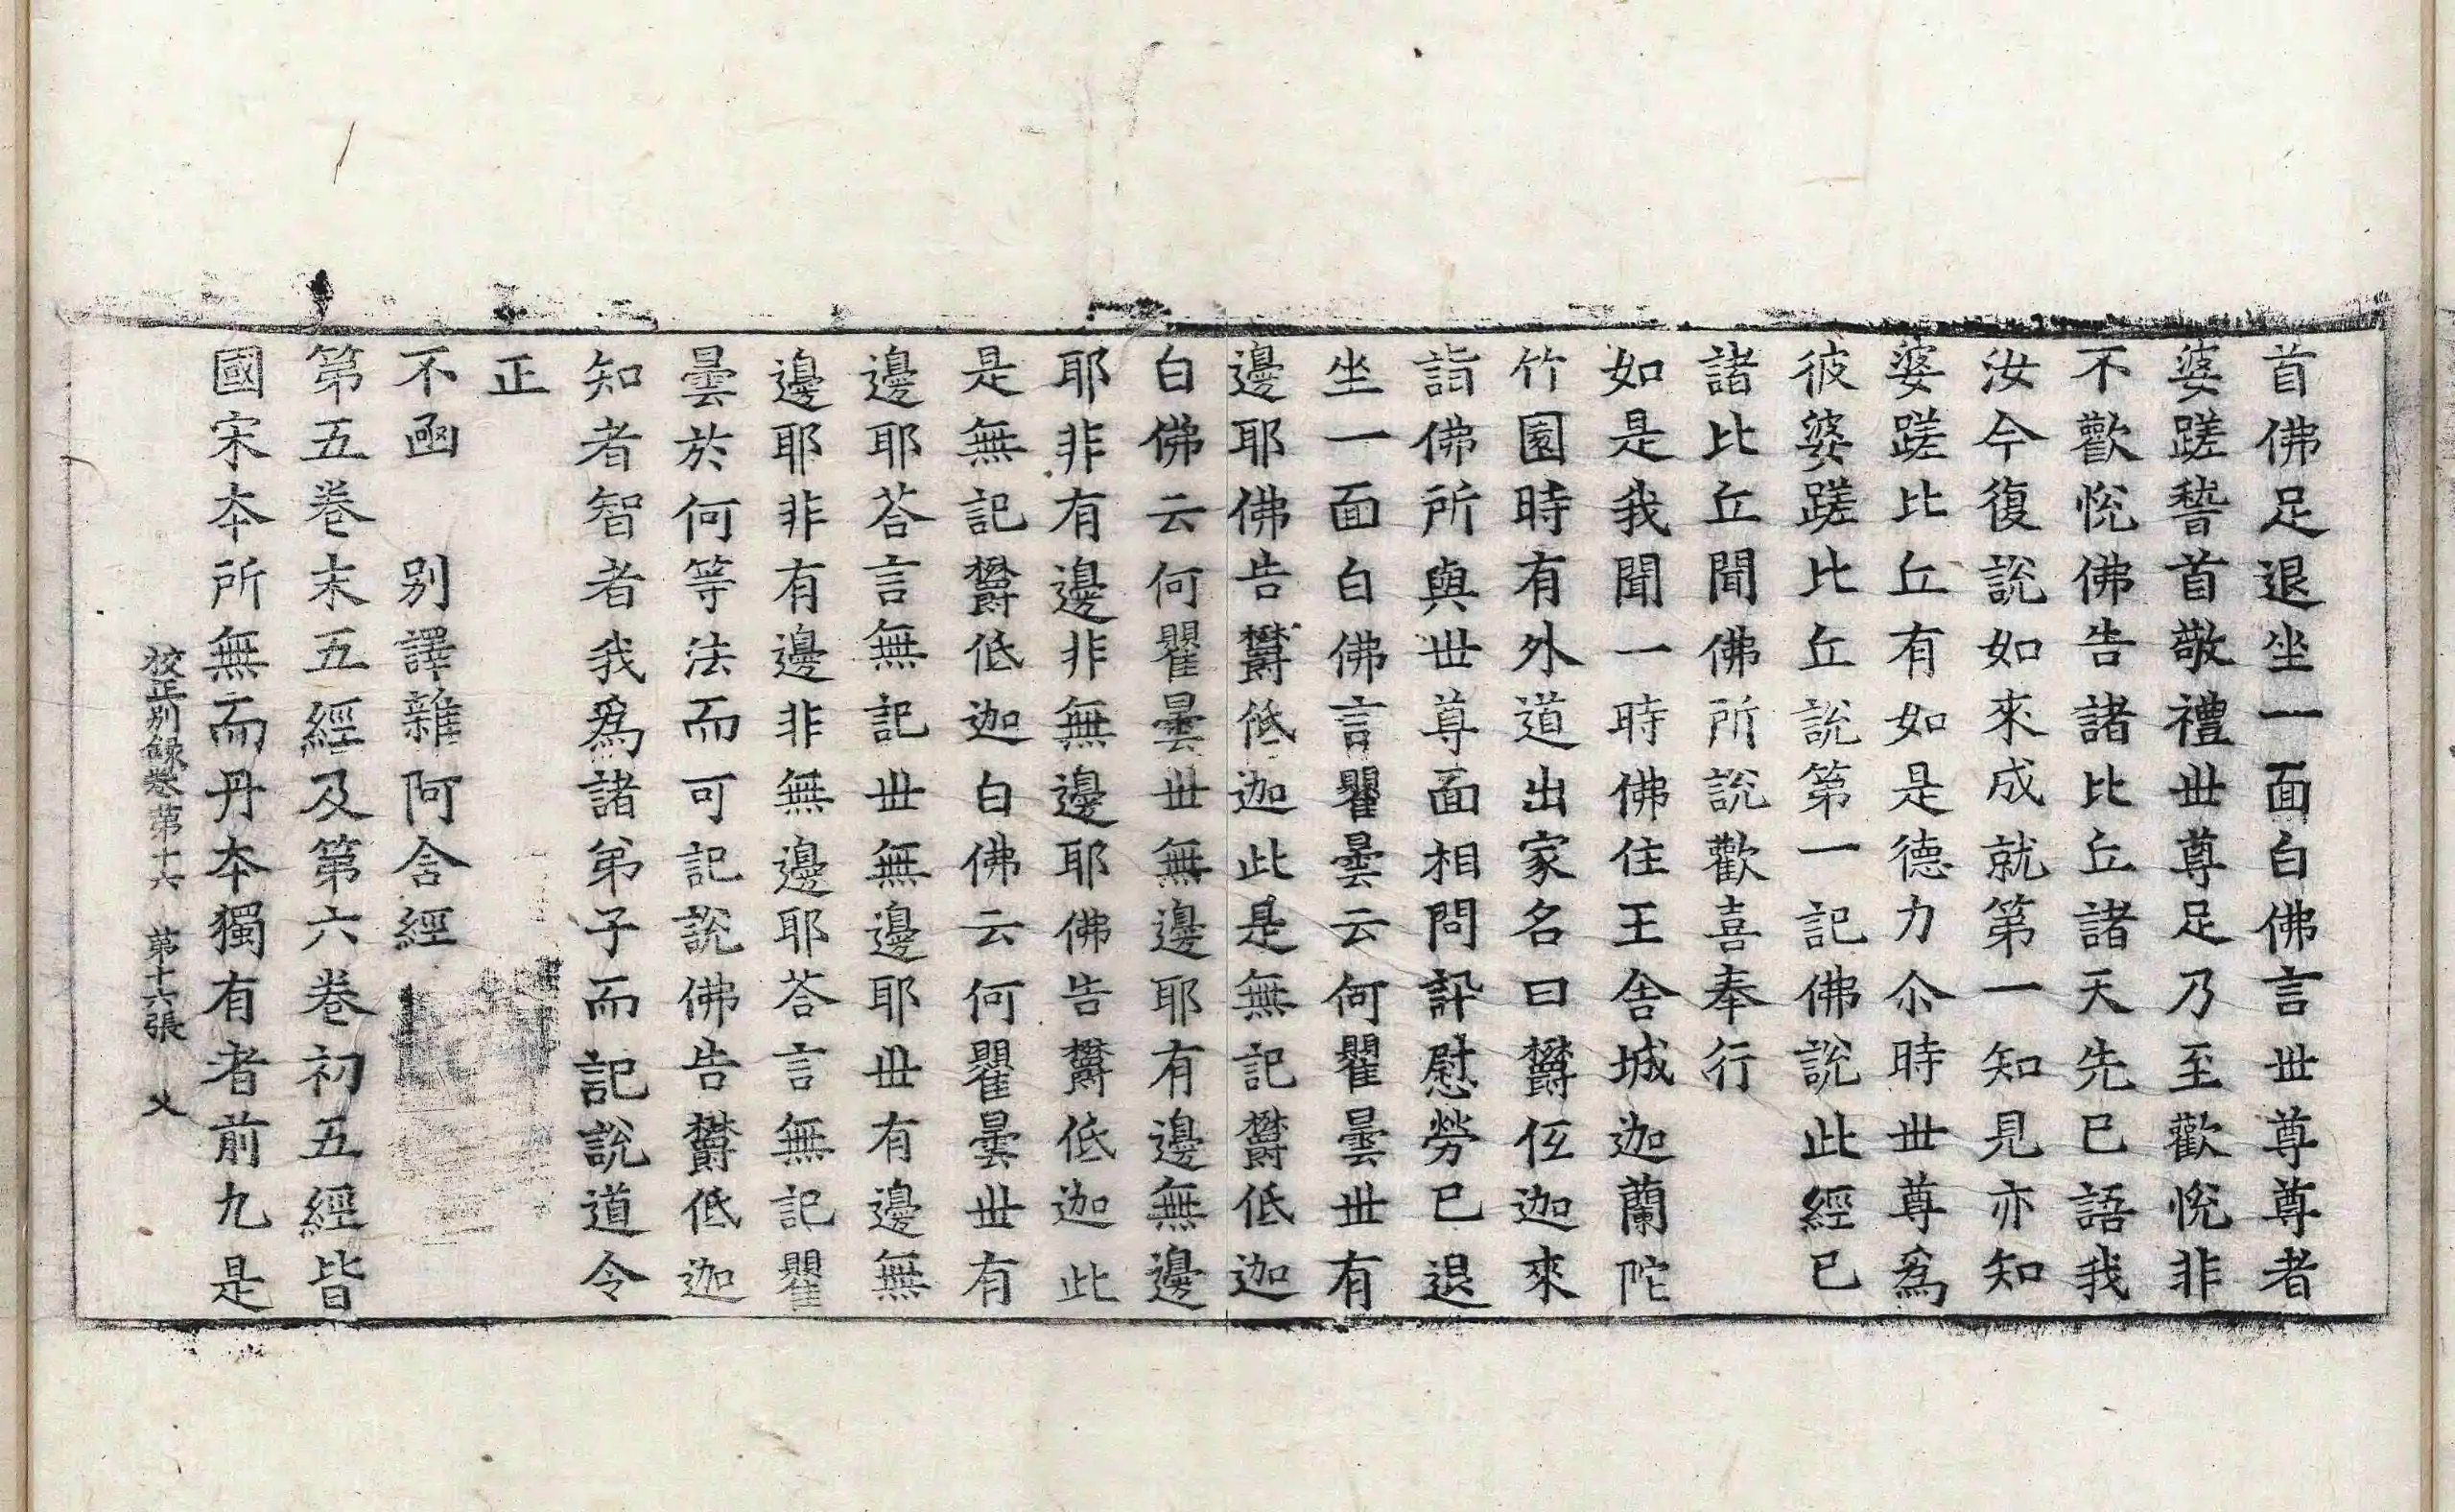 首佛足退坐一面白佛言世尊尊者
婆蹉䭫首敬禮世尊足乃至歡悅非
不歡悅佛告諸比丘諸天先已語我
汝今復說如來成就第一知見亦知
婆蹉比丘有如是德力尒時世尊爲
彼婆蹉比丘說第一記佛說此經已
諸比丘聞佛所說歡喜奉行
如是我聞一時佛住王舍城迦蘭陁
竹園時有外道出家名曰欝伍迦來
詣佛所與世尊面相問訊慰勞已退
坐一面白佛言瞿曇云何瞿曇世有
邊耶佛告欝低迦此是無記欝低迦
白佛云何瞿曇世無邊耶有邊無邊
耶非有邊非無邊耶佛告欝低迦此
是無記欝低迦白佛云何瞿曇世有
邊耶荅言無記世無邊耶世有邊無
邊耶非有邊非無邊耶荅言無記瞿
曇於何等法而可記說佛告欝低迦
知者智者我爲諸弟子而記說道令
正
不函 别譯雜阿含經
第五卷末五經及第六卷初五經皆
國宋本所無而丹本獨有者前九是
校正别錄卷第十六 第十六張